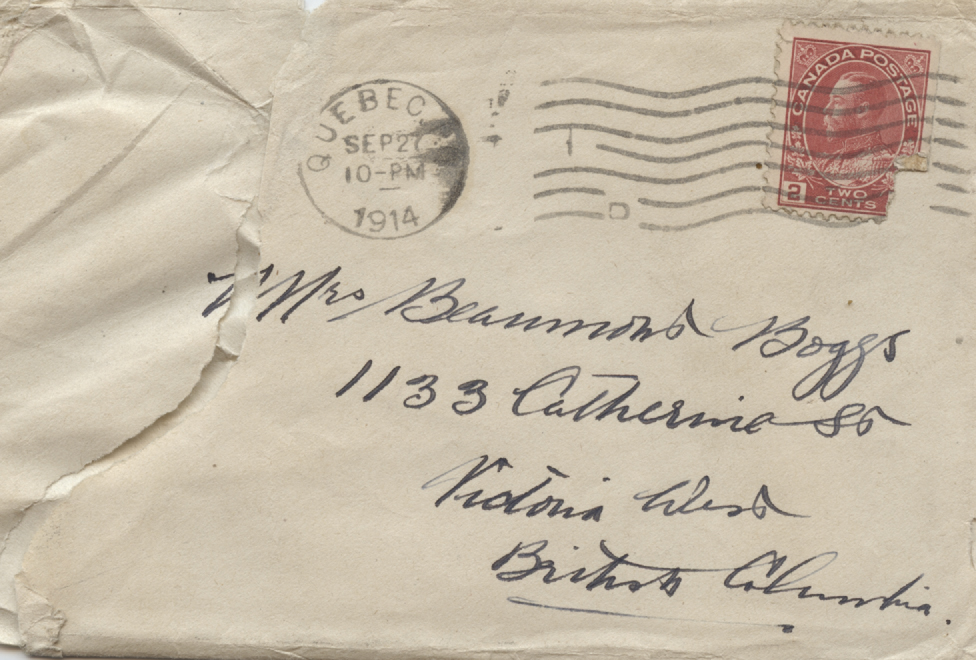 QUEBEC.
SEP 27
10-PM
1914
CANADA POSTAGE
2 TWO CENTS
Mrs Beaumont Boggs
1133 Catherine St
Victoria West
British Columbia.